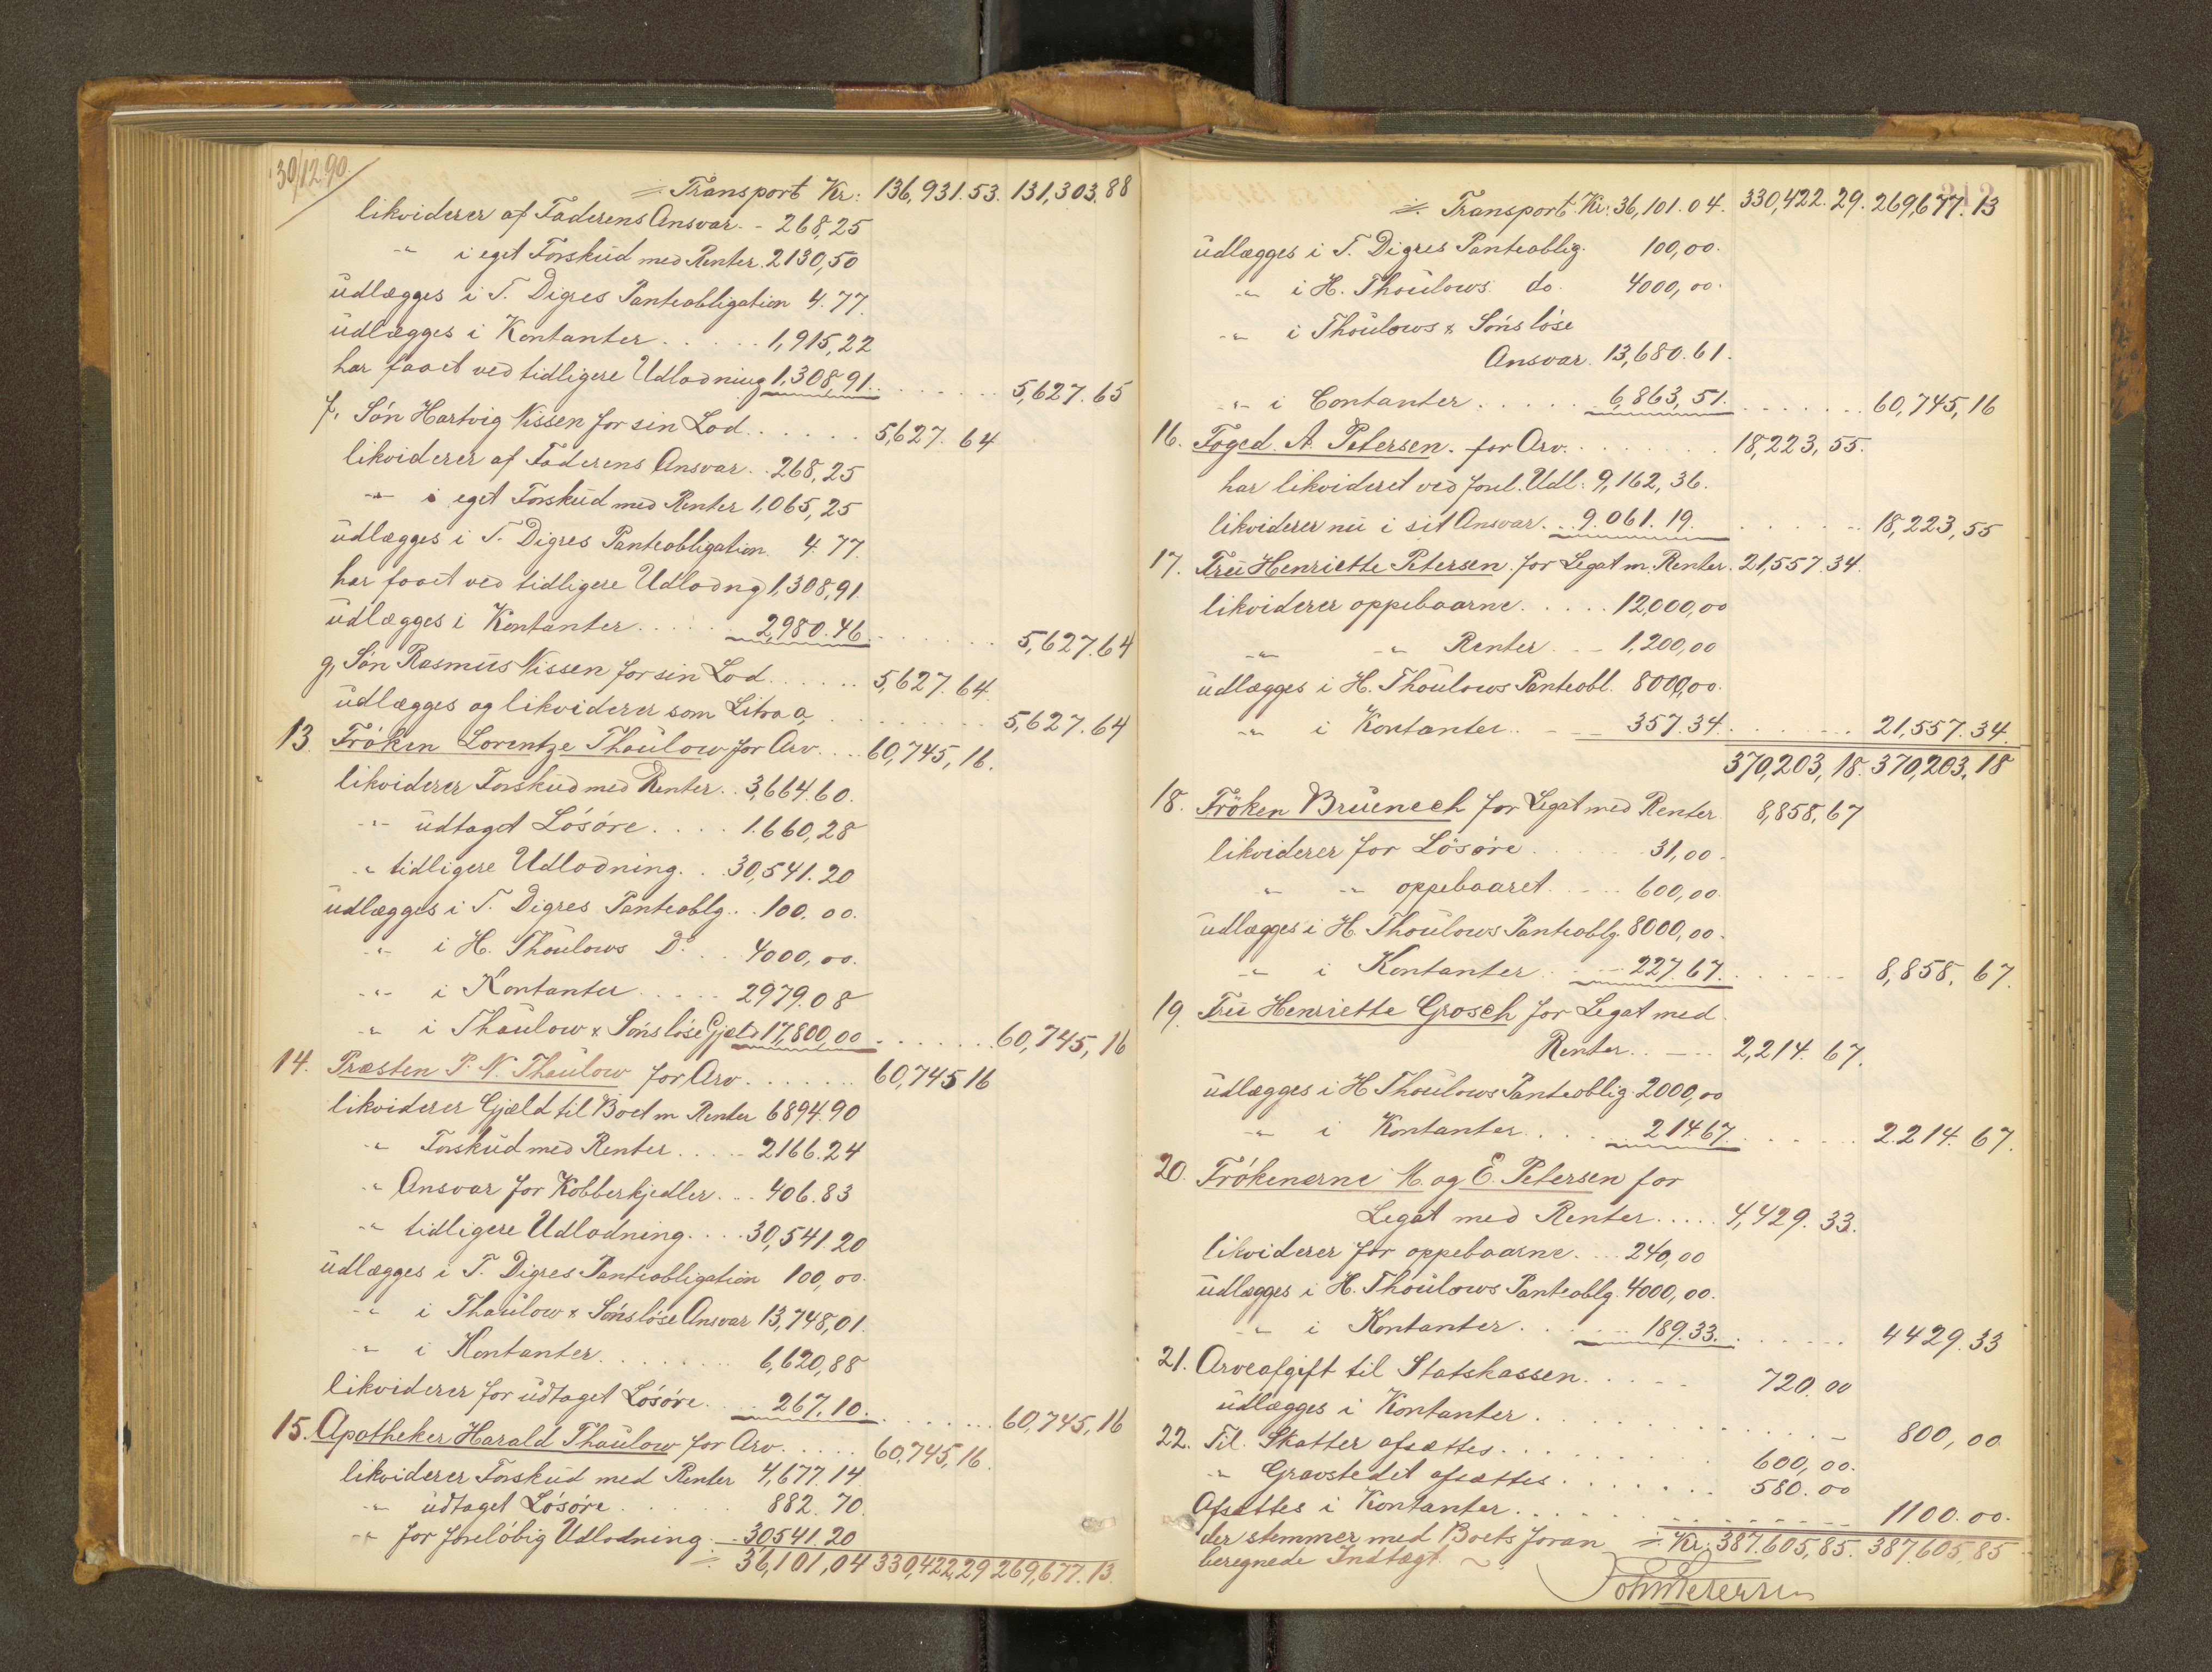 30/12 90
Transport Kr: 136,931.53. 131,303.88
likviderer af Faderens Ansvar - 268,25
-"- i eget Forskud med Renter. 2130,50
udlægges i T. Digres Panteobligation 4.77.
udlægges i Kontanter . . . . . 1,915,22
har faaet ved tidligere Udlodning 1,308,91. . . . . . . . 5,627.65
f, Søn Hartvig Nissen for sin Lod . . . . . . 5,627.64
likviderer af Faderens Ansvar . . 268,25
-"- i eget Forskud med Renter 1,065,25
udlægges i T. Digres Panteobligation 4.77.
har faaet ved tidligere Udlodng 1,308,91.
udlægges i Kontanter . . . . . 2,980.46. . . . . . . . 5,627.64
g, Søn Rasmus Nissen for sin Lod . . . . . . 5,627.64.
udlægges og likviderer som Litra a, . . . . . . . . . 5,627.64
13. Frøken Lorentze Thaulow for Arv . . . 60,745,16.
likviderer Forskud med Renter . . 3,664.60.
-"- udtaget Løsøre . . . . 1.660,28
-"- tidligere Udlodning . . . 30,541.20
udlægges i T. Digres Panteoblg. . . 100.00.
-"- i H. Thaulows Do . . 4000,00.
-"- i Kontanter . . . . . 2979.08
-"- i Thaulow & Søns løse Gjæld 17,800,00 . . . . . . . . 60,745,16
14. Præsten P. N. Thaulow for Arv . . . . . . . 60,745 16
likviderer Gjæld til Boet m Renter 6894.90
-"- Forskud med Renter . . . . . 2166.24
-"- Ansvar for Kobberkjedler . . . 406.83
-"- tidligere Udlodning . . . . 30,541.20
udlægges i T. Digres Panteobligation 100,00.
-"- i Thaulow & Søns løse Ansvar 13,748,01.
-"- i Kontanter . . . . . . . . 6,620,88
likviderer for udtaget Løsøre . . . 267.10. . . . . . . . 60,745,16
15. Apotheker Harald Thaulow for Arv . . . . . 60,745,16.
likviderer Forskud med Renter 4,677.14
-"- udtaget Løsøre . . . . . . 882.70.
-"- for foreløbig Udlodning . . 30541.20
36,101,04 330,422,29 269,677.13.
212
Transport. Kr: 36,101.04. 330,422.29. 269,677.13
udlægges i T. Digres Panteoblig. 100,00.
-"- i H. Thaulows do. 4000,00.
-"- i Thaulows & Søns løse
Ansvar. 13,680.61.
-"- i Contanter . . . . . . 6,863,51. . . . . . . . 60,745,16
16. Foged A. Petersen. for Arv. . . . . . . . . 18,223,55.
har likvideret ved forel. Udl: 9,162,36.
likviderer nu i sit Ansvar . . . 9.061.19. . . . . . . 18,223,55
17. Fru Henriette Petersen. for Legat m. Renter. 21,557.34.
likviderer oppebaarne . . . . . 12,000,00
-"- -"- Renter . . . 1,200,00
udlægges i H. Thaulows Panteobl. 8000,00.
-"- i Kontanter . . - - 357.34. . . . . . . . 21,557.34.
370,203,18. 370,203,18
18. Frøken Bruenech for Legat med Renter 8,858,67
likviderer for Løsøre . . . . . . 31,00.
-"- -"- oppebaaret . . . . . 600,00.
udlægges i H. Thaulows Panteoblg. 8000,00.
-"- i Kontanter . . . - 227.67. . . . . . . 8,858,67.
19. Fru Henriette Grosch for Legat med
Renter . . - . . 2,214.67.
udlægges i H Thaulows Panteoblig 2000,00
-"- i Kontanter . . . . 214.67. . . . . . . 2.214.67.
20. Frøkenerne M. og E. Petersen for
Legat med Renter . . . . . 4,429.33.
likviderer for oppebaarne . . . 240,00
udlægges i H. Thaulows Panteoblg. 4000,00.
-"- i Kontanter . . . . . 189.33. . . . . . . 4429.33
21. Arveafgift til Statskassen . . . . - 720.00
udlægges i Kontanter . . . . . . . . . . . . . 800,00
22. Til Skatter afsættes . . . . . . . . . . 600,00.
-"- Gravstedet afsættes . . . . . . . . 580.00
Afsættes i Kontanter . . . . . . . . . . . . . 1100.00.
der stemmer med Boets foran Kr: 387.605,85. 387.605,85
beregnede Indtægt.